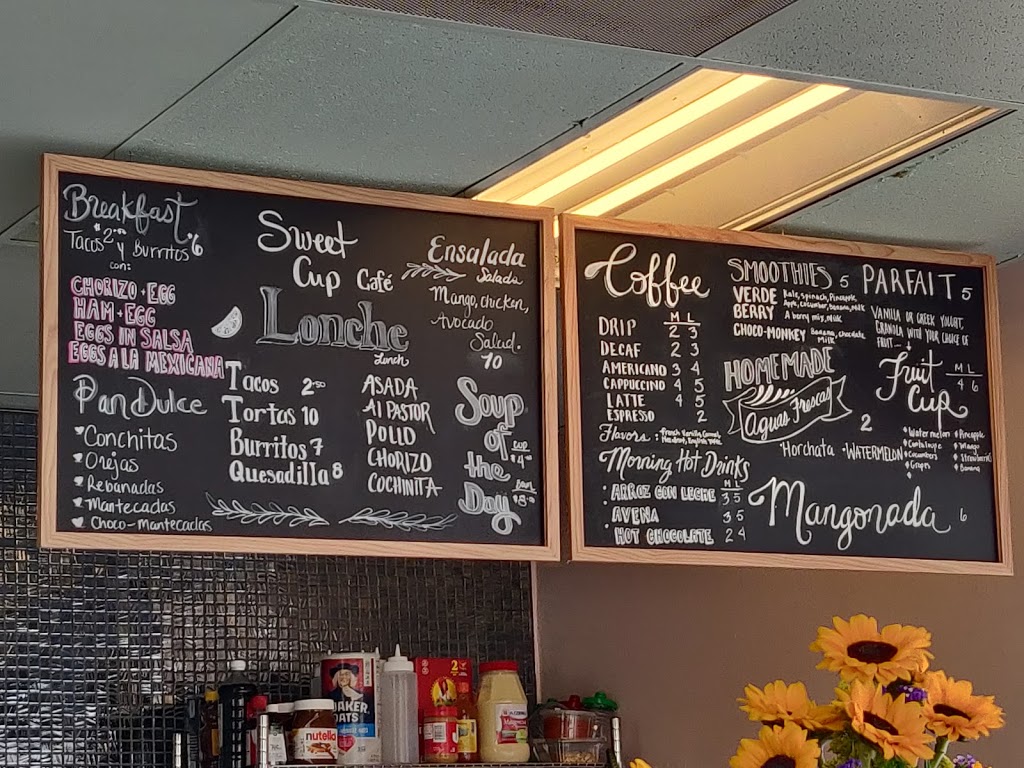 Breakfast
Tacos $2.50 y Burritos .6
con:
CHORIZO + EGG
HAM + EGG
EGGS IN SALSA
EGGS A LA MEXICANA
Pan Dulce
Conchitas
Orejas
Rebanadas
Mantecadas
Choco-Mantecadas
Sweet
Cup Café
Lonche
Lunch
Tacos 2.50
Tortas 10
Burritos 7
Quesadilla 8
ASADA
Al PASTOR
POLLO
CHORIZO
COCHINITA
Ensalada
Salada
Mango, chicken,
Avocado
Salad.
10
Soup
of
the
Day
CUP
$4
$8
Coffee
M L
DRIP 2 3
DECAF 2 3
AMERICANO 3 4
CAPPUCCINO 4 5
LATTE 4 5
ESPRESSO 2
Flavors: French Vanilla, Caramel,
Hazelnut, English
Morning Hot Drinks
M L
ARROZ CON LECHE 3 5
AVENA 3 5
HOT CHOCOLATE 2 4
SMOOTHIES 5
VERDE Kale, spinach, Pineapple,
Apple, cucumber, banana, milk
BERRY A berry mix, Milk
CHOCO-MONKEY Banana, chocolate
Milk
HOMEMADE
Aguas Frescas
2
Horchata - WATERMELON
Mangonada 6
PARFAIT 5
VANILLA OR GREEK YOGURT,
GRANOLA WITH YOUR CHOICE OF
FRUIT
Fruit
Cup
M L
4 6
Watermelon
Cantaloupe
Cucumbers
Grapes
Pineapple
Mango
Strawberries
Banana
QUAKER
OATS
nutella
2